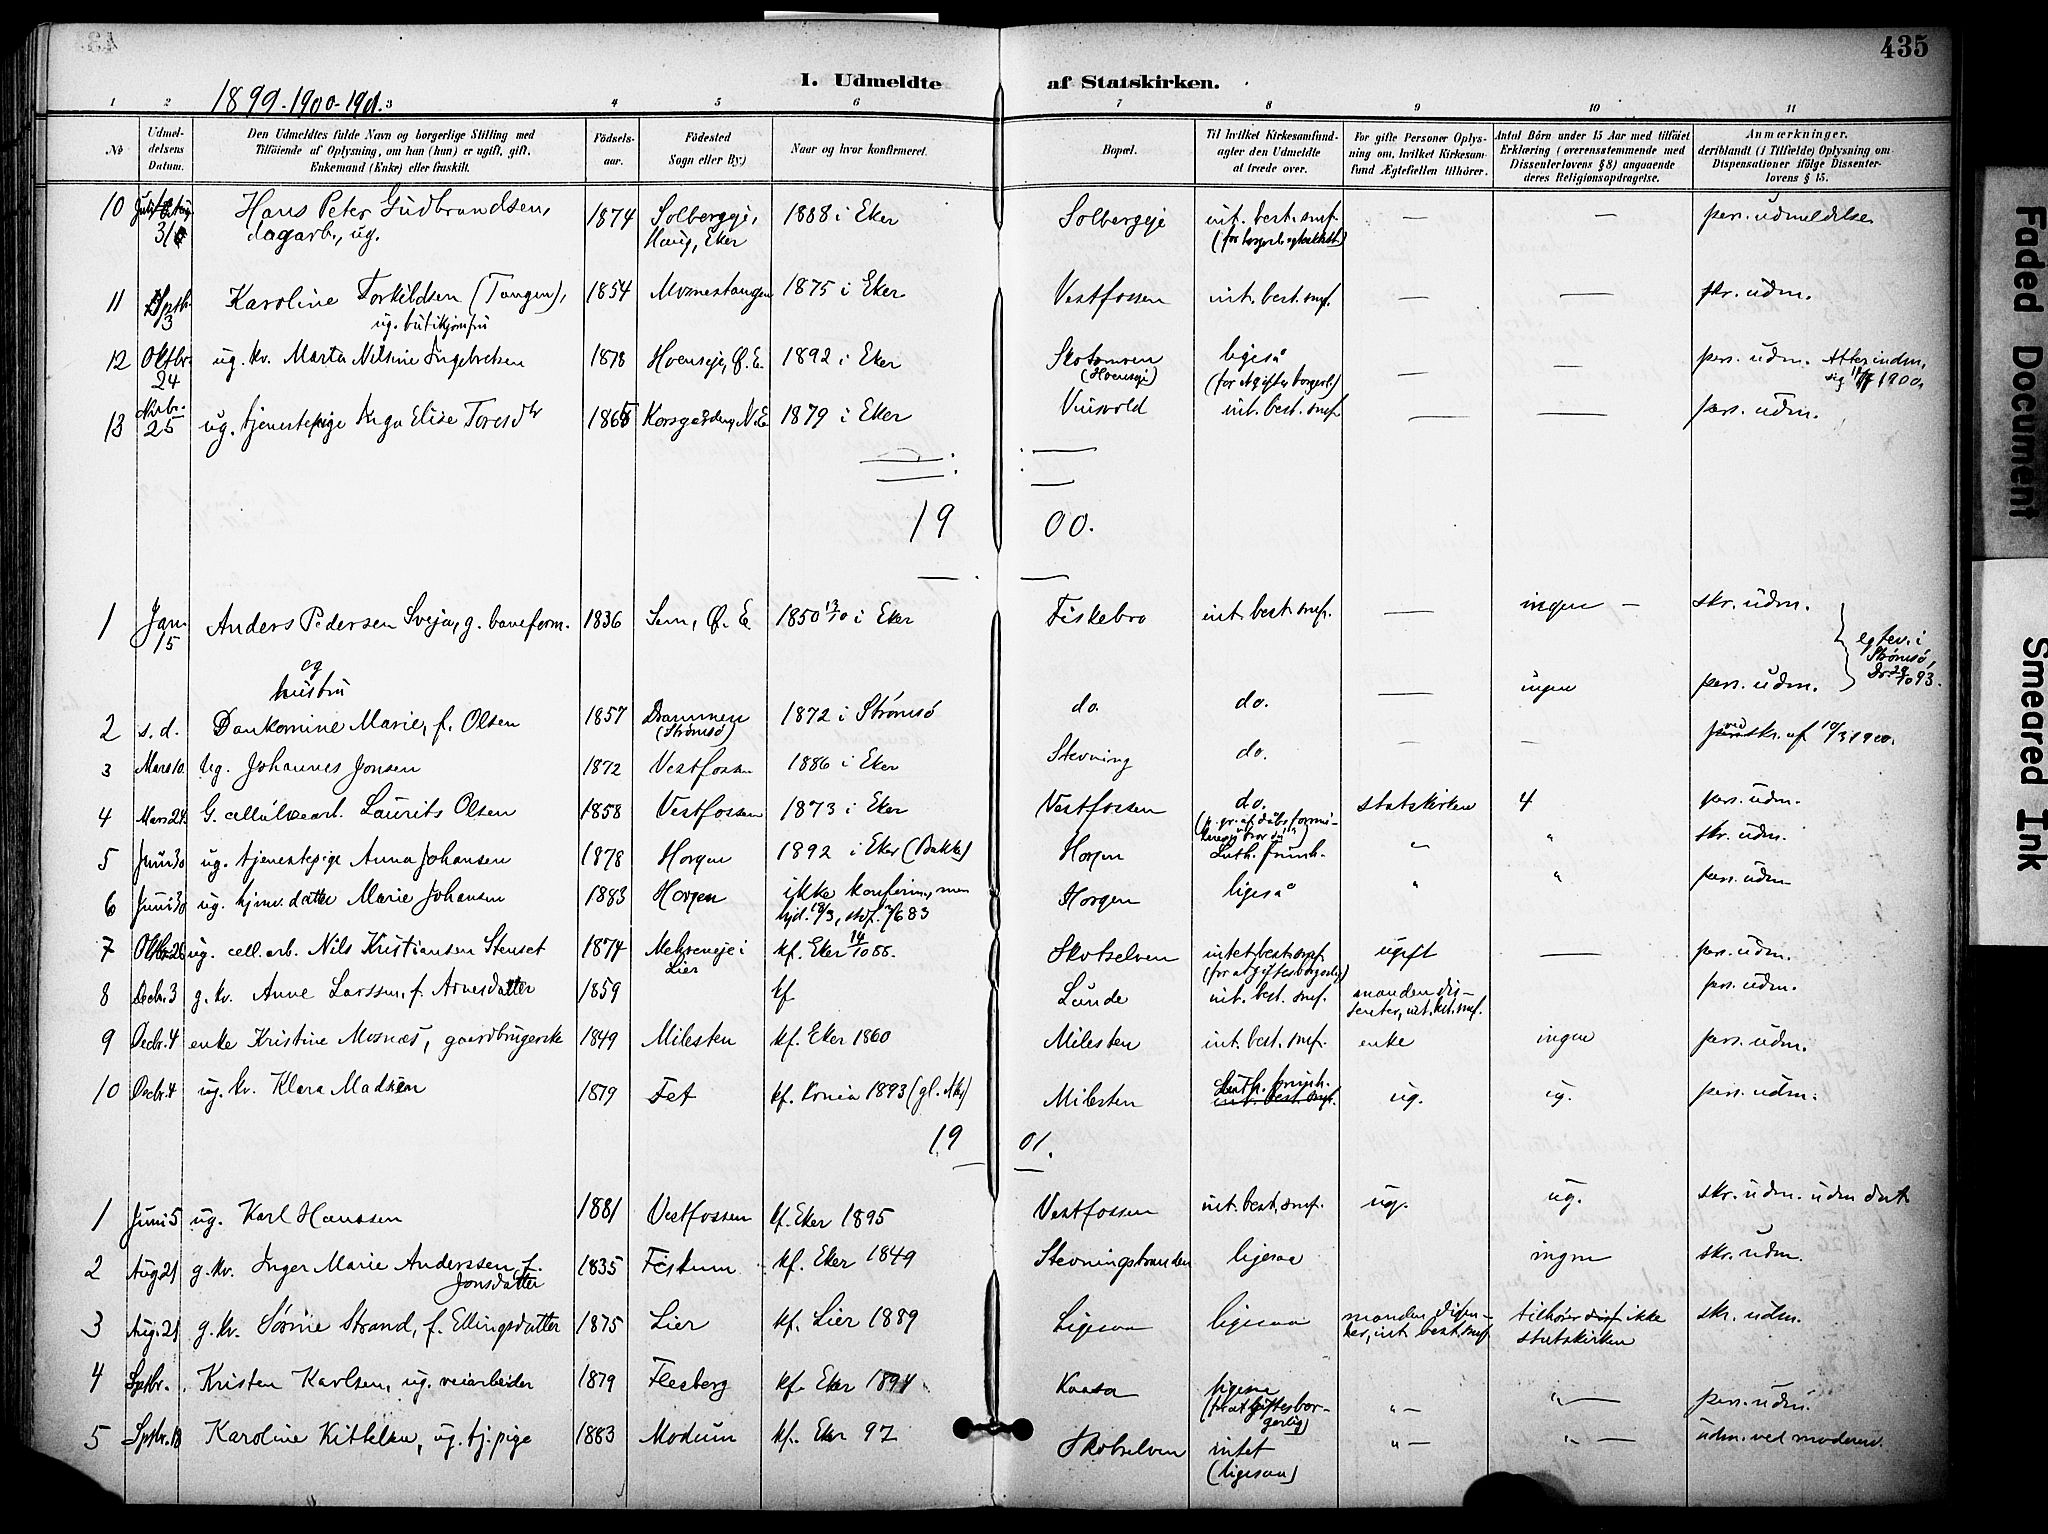 435
I. Udmeldte af Statskirken.
1899-1900-1901.
1 2 3 4 5 6 7 8 9 10 11
No
Udmeldelsens Datum.
Den Udmeldtes fulde Navn og borgerlige Stilling med Tilføiende af Oplysning, om han (hun) er ugift, gift, Enkemand (Enke) eller fraskilt.
Fødselsaar.
Fødested Sogn eller By.)
Naar og hvor konfirmeret.
Bopæl.
Til hvilket Kirkesamfund agter den Udmeldte at træde over.
For gifte Personer Oplysning om, hvilket Kirkesamfund Ægtefællen tilhører.
Antal Børn under 15 Aar med tilføiet Erklæring (overensstemmende med Dissenterlovens § 8) angaaende deres Religionsopdragelse.
Anmærkninger, deriblandt (i Tilfælde) Oplysning om Dispensationer ifølge Dissenterlovens § 15.
10 31 Hans Peter Gudbrandsen, dagarb., ug. 1874 Solbergeje, Haug, Eker 1888 i Eker Solbergeje int. best. smf. — — pers. udmeldelse
11 Sptb. 3 Karoline Torkildsen (Tangen), ug. butikjomfru 1854 Momestangen 1875 i Eker Vestfossen int. best. smf. — — skr. udm.
12 Oktbr. 24 ug. kv. Marta Nilsine Ingebretsen 1878 Hoenseje, Ø. E. 1892 i Eker (Hoenseje) ligeså (for at giftes borgerl.) — — pers. udm. Atter indm. sig 1900.
13 Novbr. 25 ug. tjenestepige Inga Elise Toresdtr 1865 Korsgården, N.E. 1879 i Eker int. best. smf. — — pers. udm.
1900.
1 Jan. 15 Anders Pedersen Sveja, g. baneform. 1836 Sem, Ø. E. 1850 13/10 i Eker Fiskebro int. best. smf. — ingen — skr. udm.
og hustru
2 s. d. Dankomine Marie, f. Olsen 1857 Drammen (Strømsø) 1872 i Strømsø do. do. — ingen pers. udm. } egtev. i Strømsø, 29/10 93.
3 Mars 10. Ug. Johannes Jonsen 1872 Vestfossen 1886 i Eker Stevning do. — — ved skr. af 10/3 1900.
4 Mars 24. G. cellulosearb. Laurits Olsen 1858 Vestfossen 1873 i Eker Vestfossen do. statskirken 4 pers. udm.
5 Juni 30 ug. tjenestepige Anna Johansen 1878 Horgen 1892 i Eker (Bakke) Horgen Luth. frimh. " " skr. udm.
6 Juni 30 ug. hjmv. datter Marie Johansen 1883 Horgen ikke konfirm., men Horgen ligeså " " pers. udm.
7 Oktbr. 26 ug. cell. arb. Nils Kristiansen Stenset 1874 i Lier kf. Eker 14/10 88. Skotselven intet best. smf. (for at giftes borgerlig) ugift — pers. udm.
8 Decbr. 3 g. kv. Anne Larssen, f. Arnesdatter 1859 kf Lunde int. best. smf. manden dissenter, int. bst. smf. pers. udm.
9 Decbr. 4 enke Kristine Mosnæs, gaardbrugerske 1849 Milesten kf. Eker 1860 Milesten int. best. smf. enke ingen pers. udm.
10 Decbr. 4 ug. kv. Klara Madsen 1879 Fet kf. Krnia 1893 (gl. Aker) Milesten Luth. frimh. int. best. smf. ug. ug. pers. udm.
1901.
1 Juni 5 ug. Karl Hanssen 1881 Vestfossen kf. Eker 1895 Vestfossen int. best. smf. ug. ug. skr. udm. uden dat.
2 Aug 21 g. kv. Inger Marie Anderssen, f. Jonsdatter 1835 Fiskum kf. Eker 1849 Stevningstranden ligesaa ingen skr. udm.
3 Aug. 21 g. kv. Sørine Strand, f. Ellingsdatter 1875 Lier kf. Lier 1889 Ligesaa ligesaa manden dissenter, int. best. smf tilhører ikke statskirken skr. udm.
4 Sptbr. Kristen Karlsen, ug. veiarbeider 1879 Flesberg kf. Eker 1894 Kaasa ligesaa (for at giftes borgerlig) " — " — pers. udm.
5 Sptbr. 18 Karoline Kittelsen, ug. tj. pige 1883 Modum kf. Eker 97 Skotselven intet (ligesaa) " — " — udm. ved moderen.
Faded Document
Smeared Ink